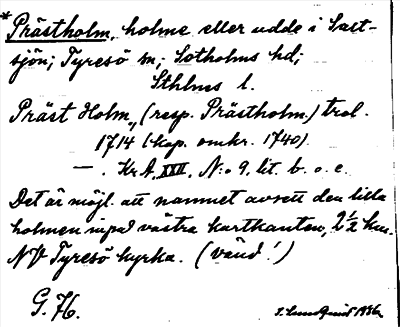 *Prästholm, holme eller udde i Salt-
sjön; Tyresö sn; Sotholms hd;
Sthlms l.
Präst Holm, (resp. Prästholm.) trol.
1714 (kop. omkr. 1740).
— . Kr A. XXII. N:o 9. lit. b. o. c.
Det är möjl. att namnet avsett den lilla
holmen invid västra kartkanten, 2½ km.
NV Tyresö kyrka. (vänd!)
G. 76.
J. Lundquist 1936.